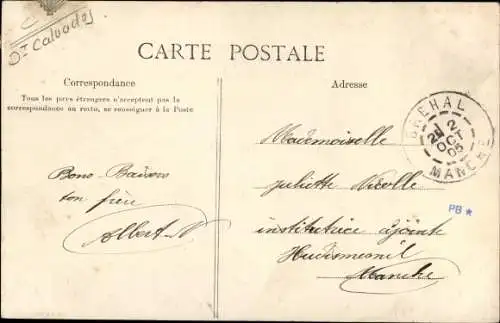 Dt Calvados
CARTE POSTALE
Correspondance
Tous les pays étrangers n'acceptent pas la
correspondance au recto, se renseigner à la Poste
Adresse
BREHAL
2E
2
OCT
05
MANCHE
Bons Baisers
ton frère
Albert N
Mademoiselle
juliette Nicolle
institutrice adjointe
Hudimesnil
Manche
PB *